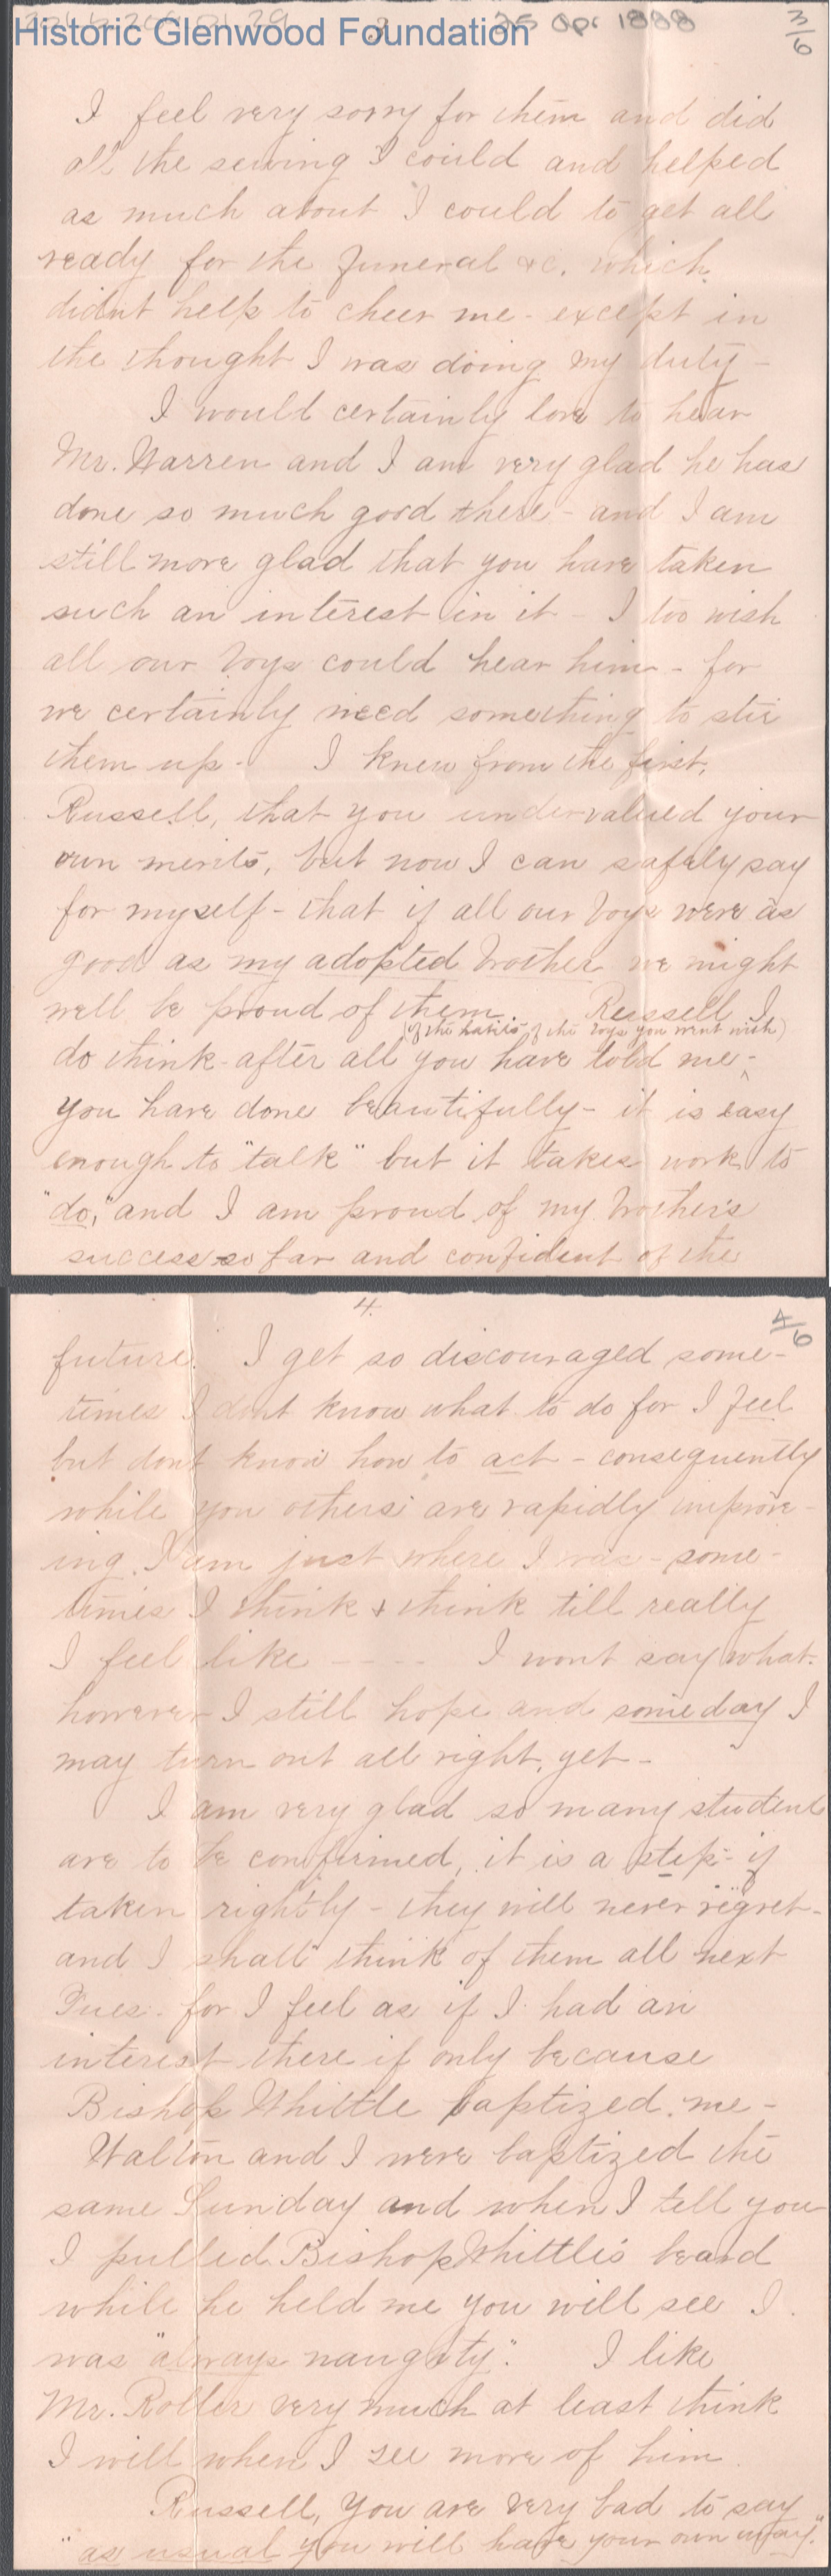 Historic Glenwood Foundation
3
25 Apr 1888
3/6
I feel very sorry for them and did
all the sewing I could and helped
as much about I could to get all
ready for the funeral &c. which
didn't help to cheer me - except in
the thought I was doing my duty -
I would certainly love to hear
Mr. Warren and I am very glad he has
done so much good there - and I am
still more glad that you have taken
such an interest in it - I too wish
all our boys could hear him - for
we certainly need something to stir
them up - I knew from the first,
Russell, that you undervalued your
own merits, but now I can safely say
for myself - that if all our boys were as
good as my adopted brother we might
well be proud of them. Russell I
(of the habits of the boys you went with)
do think - after all you have told me -
you have done beautifully - it is easy
enough to "talk" but it takes work to
"do," and I am proud of my brother's
success so far and confident of the
4.
4/6
future. I get so discouraged some-
times I dont know what to do for I feel
but dont know how to act - consequently
while you others are rapidly improv-
ing I am just where I was - some-
times I think & think till really
I feel like - - - - I wont say what.
however I still hope and someday I
may turn out all right, yet -
I am very glad so many students
are to be confirmed, it is a step - if
taken rightly - they will never regret -
and I shall think of them all next
Tues. for I feel as if I had an
interest there if only because
Bishop Whittle baptized me -
Walton and I were baptized the
same Sunday and when I tell you
I pulled Bishop Whittle's beard
while he held me you will see I
was "always naughty". I like
Mr. Roller very much at least think
I will when I see more of him
Russell, You are very bad to say
"as usual you will have your own way."